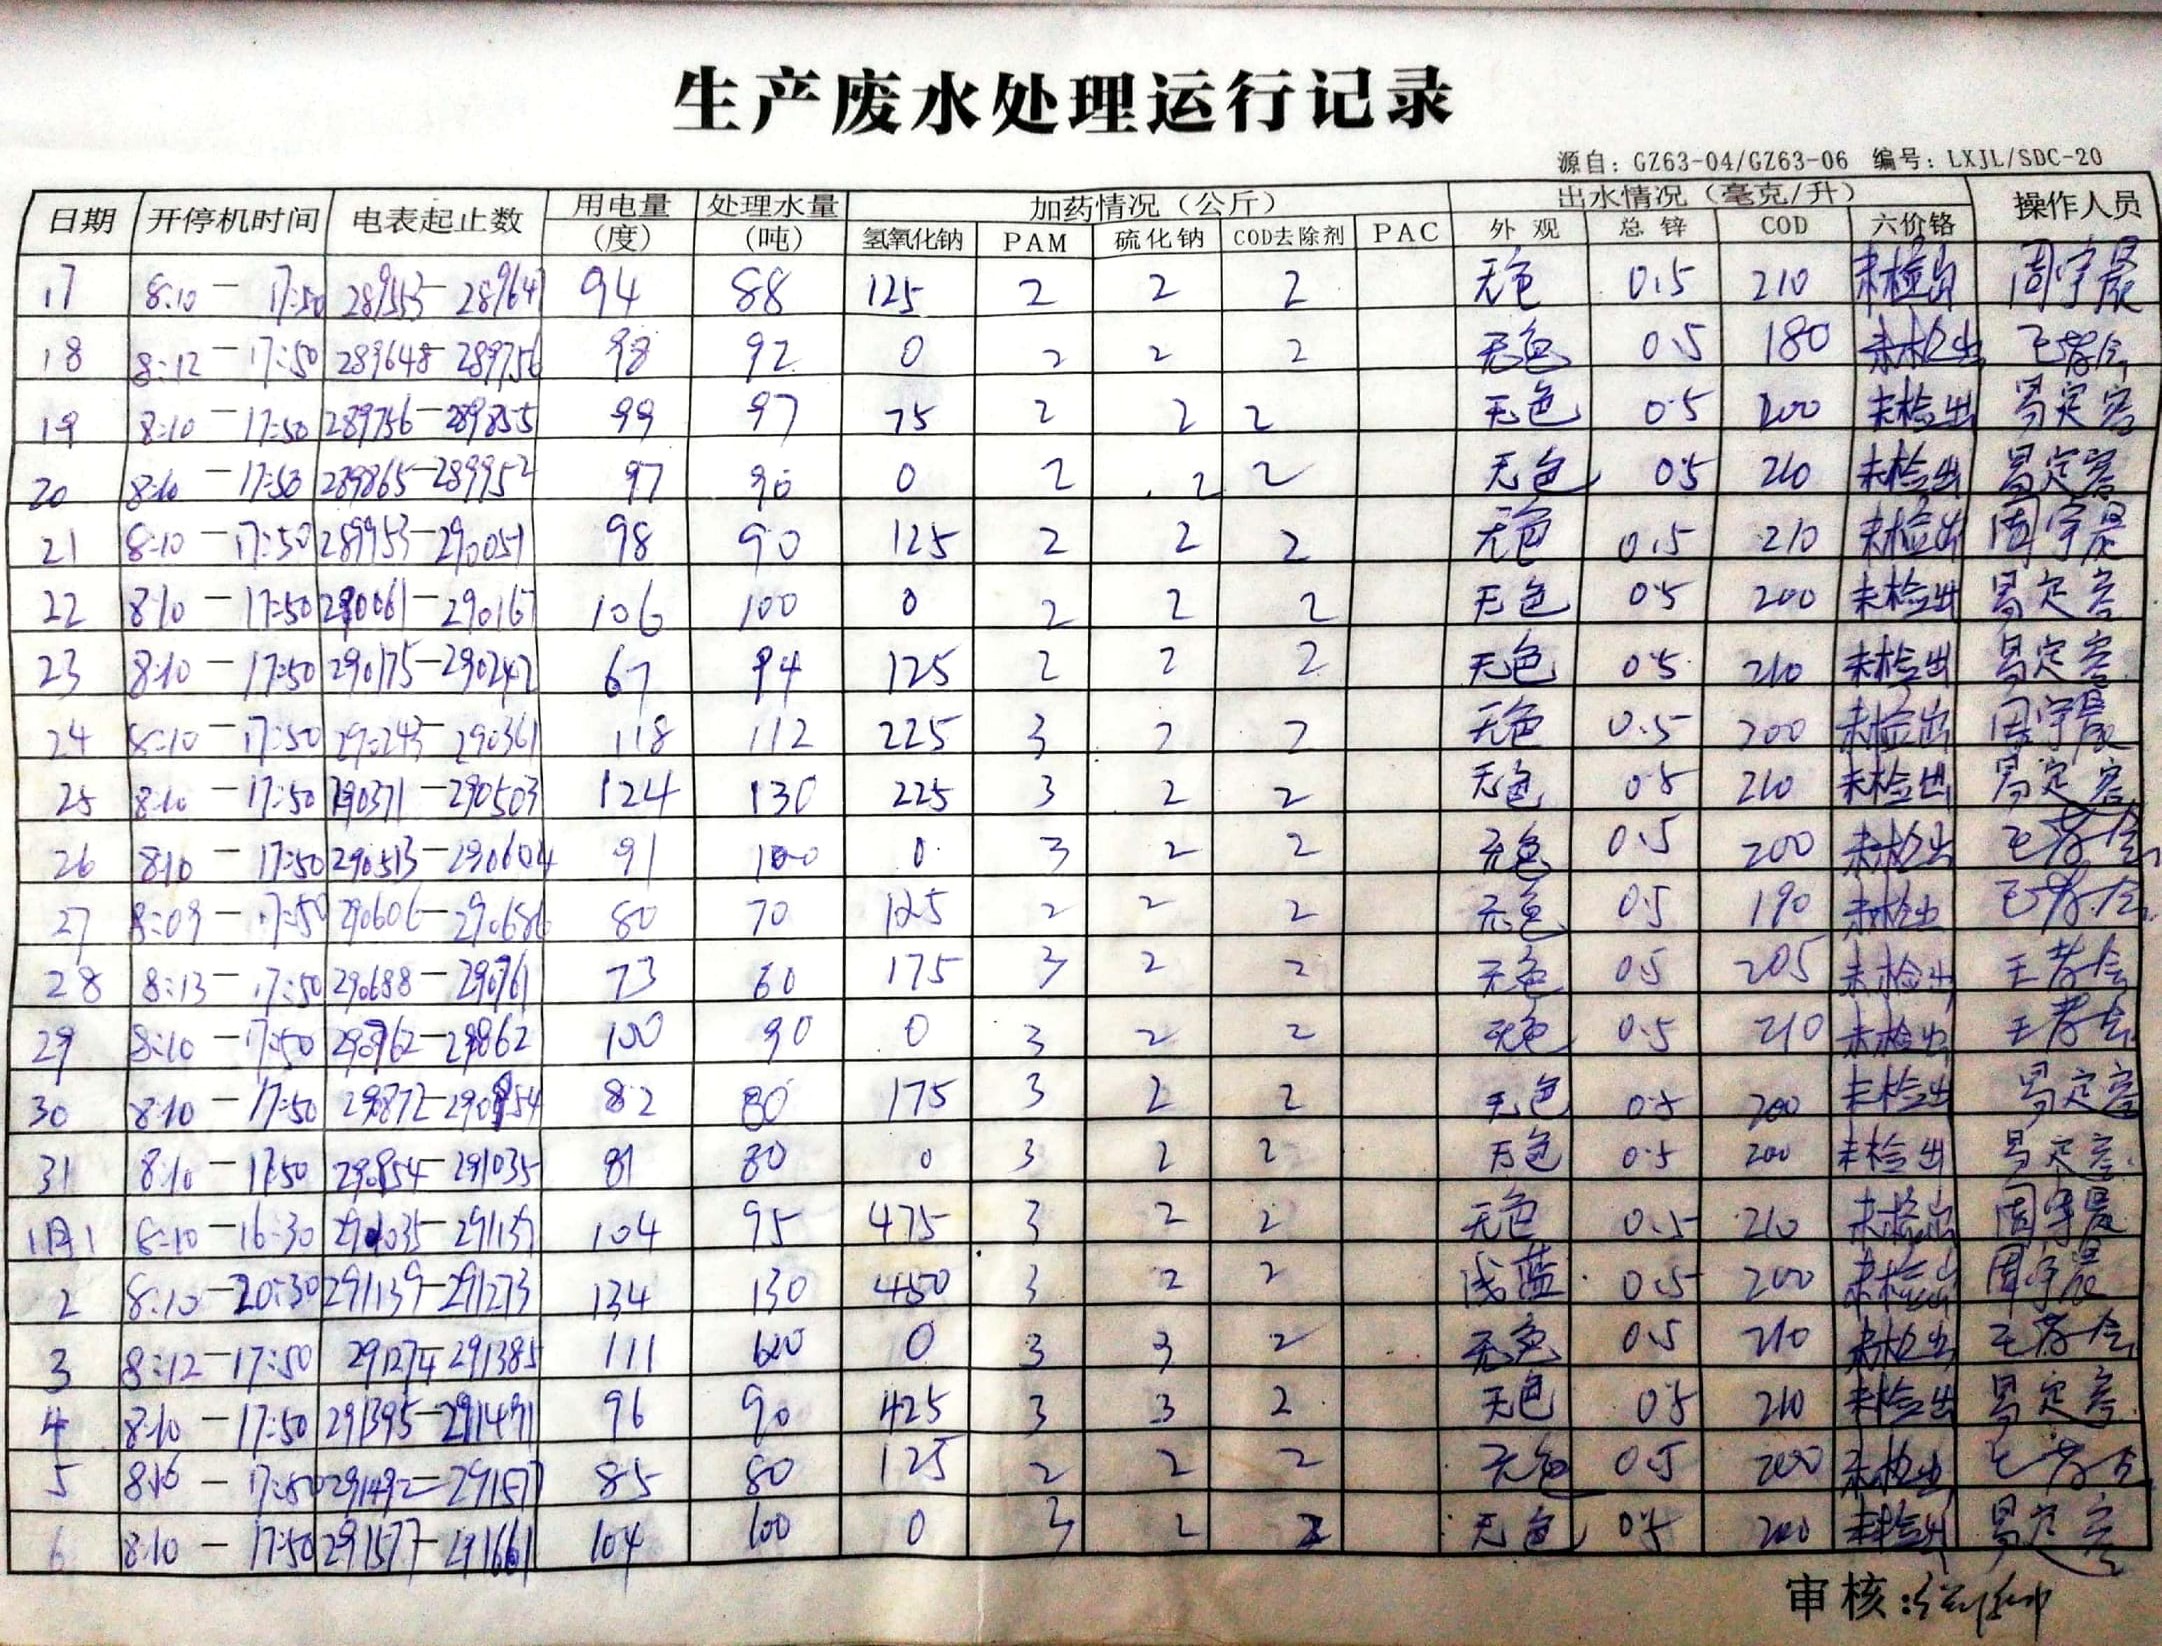 生产废水处理运行记录
源自：GZ63-04/GZ63-06 编号：LXJL/SDC-20
日期 开停机时间 电表起止数 用电量(度) 处理水量(吨) 加药情况（公斤） 出水情况（毫克/升） 操作人员
氢氧化钠 PAM 硫化钠 COD去除剂 PAC 外观 总锌 COD 六价铬
17 8:10—17:50 289553—289647 94 88 125 2 2 2 无色 0.5 210 未检出 周宇晨
18 8:12—17:50 289648-289756 98 92 0 2 2 2 无色 0.5 180 未检出
19 8:10—17:50 289756—289855 99 97 75 2 2 2 无色 0.5 200 未检出 易定容
20 8:10—17:50 289865—289952 97 90 0 2 2 2 无色 0.5 210 未检出 易定容
21 8:10—17:50 289953—290051 98 90 125 2 2 2 无色 0.5 210 未检出 周宇晨
22 8:10—17:50 290061—290167 106 100 0 2 2 2 无色 0.5 200 未检出 易定容
23 8:10—17:50 290175—290242 67 94 125 2 2 2 无色 0.5 210 未检出 易定容
24 8:10—17:50 290243—290361 118 112 225 3 2 2 无色 0.5 200 未检出 周宇晨
25 8:10—17:50 290371—290503 124 130 225 3 2 2 无色 0.5 210 未检出 易定容
26 8:10—17:50 290513—290604 91 100 0 3 2 2 无色 0.5 200 未检出
27 8:09—17:50 290606—290686 80 70 125 2 2 2 无色 0.5 190 未检出
28 8:13—17:50 290688—290761 73 60 175 3 2 2 无色 0.5 205 未检出
29 8:10—17:50 290762—29862 100 90 0 3 2 2 无色 0.5 210 未检出
30 8:10—17:50 29872—290954 82 80 175 3 2 2 无色 0.5 200 未检出 易定容
31 8:10—17:50 290954—291035 81 80 0 3 2 2 无色 0.5 200 未检出 易定容
1月1 8:10—16:30 291035—291139 104 95 475 3 2 2 无色 0.5 210 未检出 周宇晨
2 8:10—20:30 291139—291273 134 130 450 3 2 2 浅蓝 0.5 200 未检出 周宇晨
3 8:12—17:50 291274—291385 111 0 3 3 2 无色 0.5 210 未检出
4 8:10—17:50 291395—291491 96 90 425 3 3 2 无色 0.5 210 未检出 易定容
5 8:10—17:50 291492—291577 85 80 125 2 2 2 无色 0.5 200 未检出
6 8:10—17:50 291577—291661 104 100 0 3 2 2 无色 0.5 200 未检出 易定容
审核: